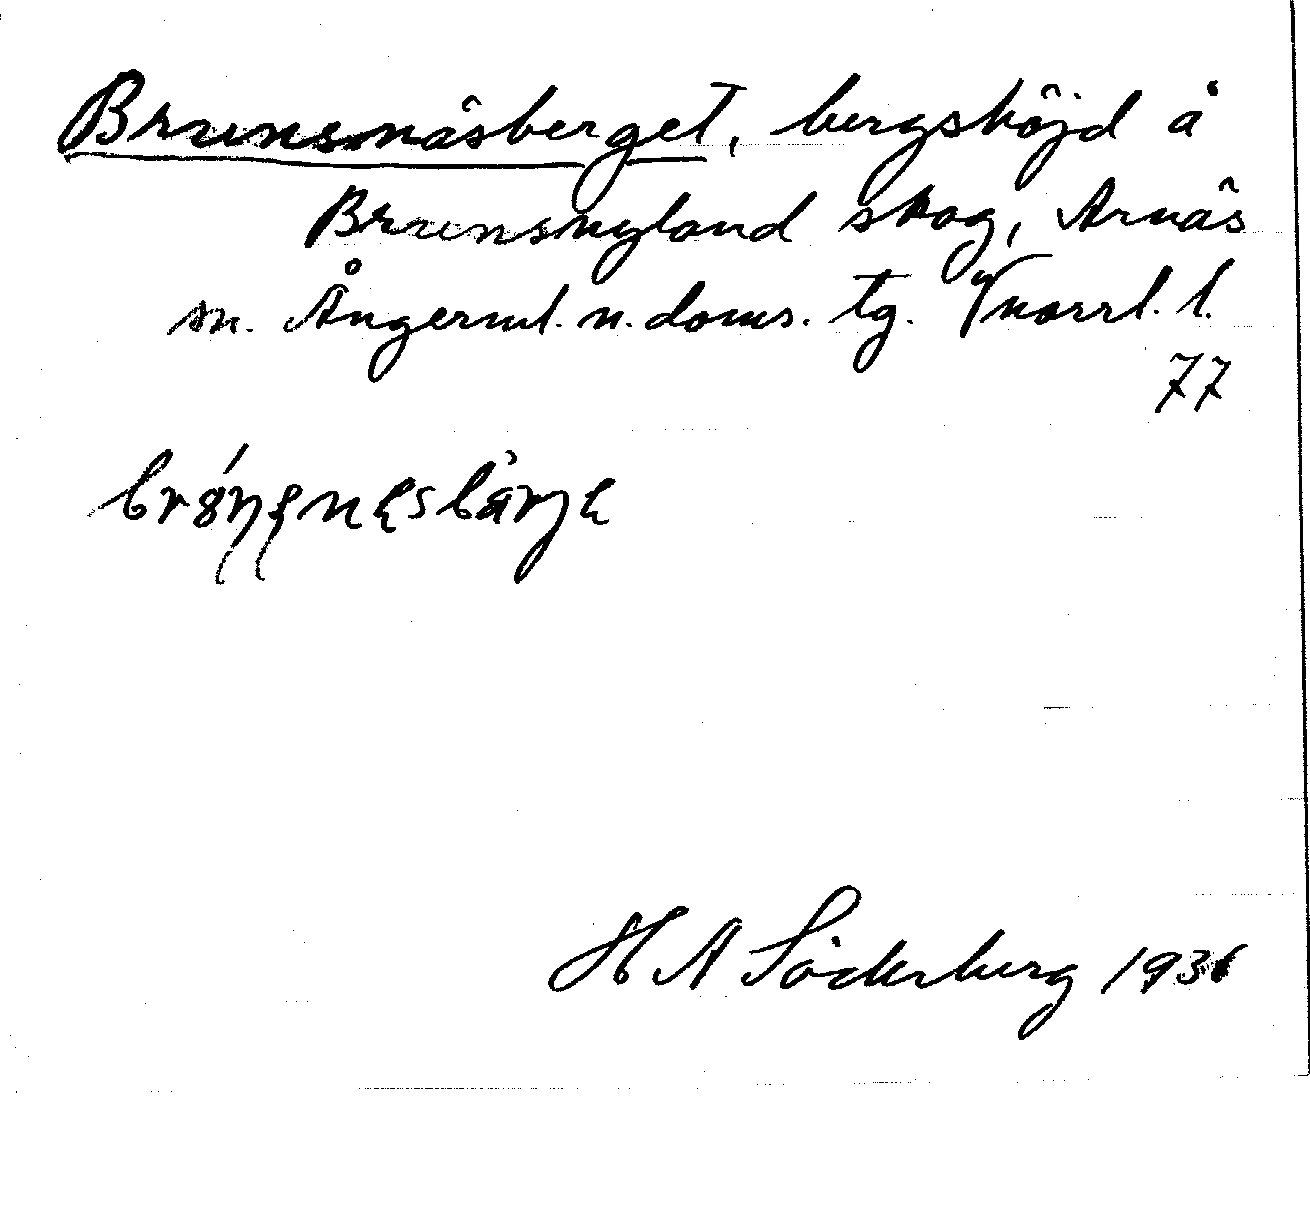 Brunsnäsberget, bergshöjd å
Brunsnyland skog, Arnäs
sn. Ångerml. n. doms. tg. V norrl. l.
77
H A Söderberg 1936